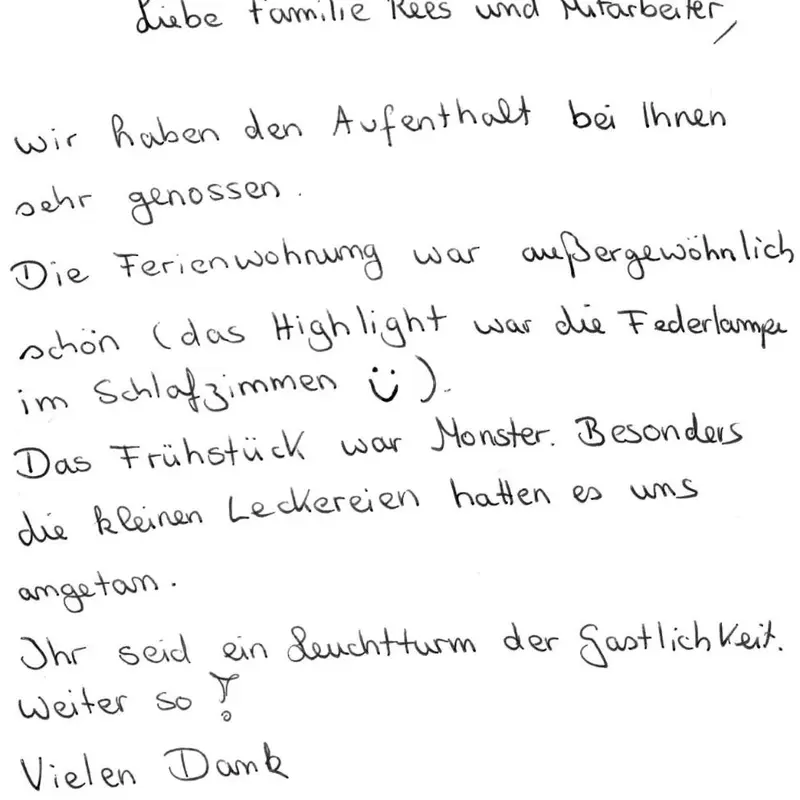 Liebe Familie Rees und Mitarbeiter,
wir haben den Aufenthalt bei Ihnen
sehr genossen.
Die Ferienwohnung war außergewöhnlich
schön (das Highlight war die Federlampe
im Schlafzimmen ü).
Das Frühstück war Monster. Besonders
die kleinen Leckereien hatten es uns
angetan.
Ihr seid ein Leuchtturm der Gastlichkeit.
Weiter so!
Vielen Dank